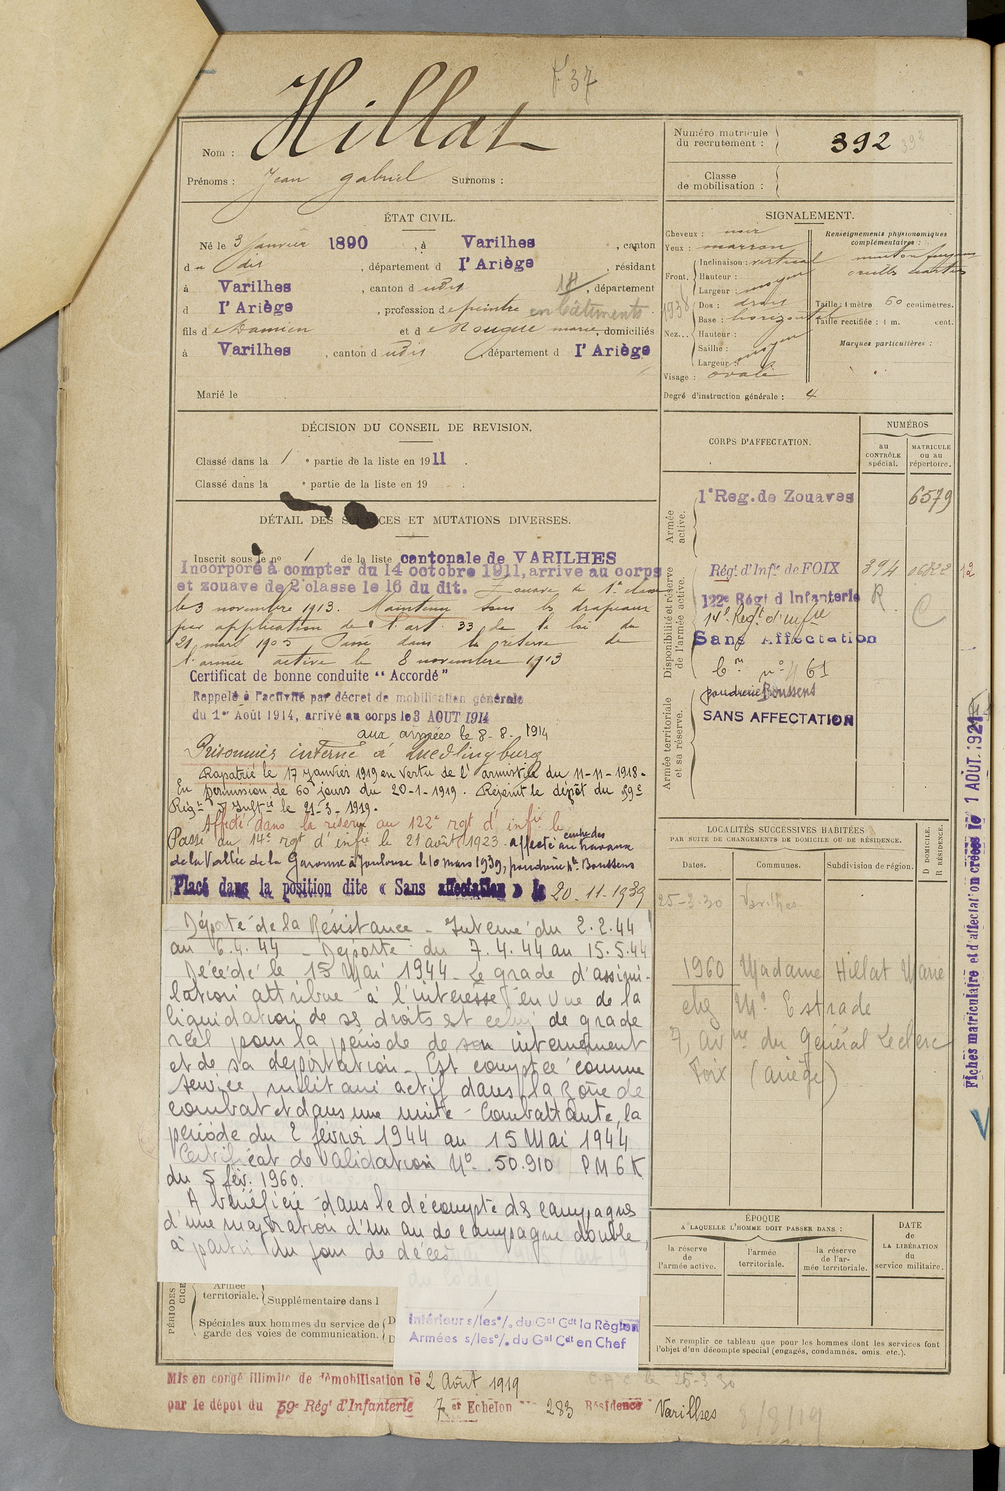 F 37
Nom : Hillat
Prénoms : Jean Gabriel Surnoms :
Numéro matricule du recrutement : 392 392
Classe de mobilisation :
ÉTAT CIVIL.
Né le 3 Janvier 1890, à Varilhes, canton
d u dit, département d l'Ariège, résidant
à Varilhes, canton d udit, département
d l'Ariège, profession d e peintre en bâtiments
fils d e Damien et d e Rouquié marie, domiciliés
à Varilhes, canton d udit département d l'Ariège
Marié le
SIGNALEMENT.
Cheveux : noir
Yeux : marron
Front. Inclinaison : vertical
Hauteur : moyen
Largeur :
1938
Nez... Dos : droit
Base : horizontal
Hauteur :
Saillie : moyen
Largeur :
Visage : ovale
Degré d'instruction générale : 4
Renseignements physionomiques complémentaires :
menton fuyant
oreilles écartées
Taille : 1 mètre 60 centimètres.
Taille rectifiée : 1 m. cent.
Marques particulières :
DÉCISION DU CONSEIL DE REVISION.
Classé dans la 1e partie de la liste en 1911.
Classé dans la e partie de la liste en 19 .
DÉTAIL DES SERVICES ET MUTATIONS DIVERSES.
Inscrit sous le n° 1 de la liste cantonale de VARILHES
Incorporé à compter du 14 octobre 1911, arrive au corps
et zouave de 2e classe le 16 du dit. Zouave de 1e classe
le 3 novembre 1913. Maintenu sous les drapeaux
par application de l'art. 33 de la loi du
21 mars 1905 Passé dans la réserve de
l'armée active le 8 novembre 1913
Certificat de bonne conduite “ Accordé ”
Rappelé à l'activité par décret de mobilisation générale
du 1er Août 1914, arrivé au corps le 3 AOUT 1914
aux armées le 8-8-1914
Prisonnier interné à Quedlinburg
Rapatrié le 17 Janvier 1919 en vertu de l'armistice du 11-11-1918-
En permission de 60 jours du 20-1-1919. Rejoint le dépôt du 59e
Régt d'Inftie le 21-3-1919.
Affecté dans la réserve au 122e rgt d'infie le
Passé du 14e rgt d'infie le 21 août 1923. affecté au centre des travaux
de la Vallée de la Garonne à Toulouse le 10 mars 1939, poudrerie de Boussens
Placé dans la position dite « Sans affectation » le 20-11-1939
Déporté de la Résistance - Interné du 2.2.44
au 6.4.44 - Déporté du 7.4.44 au 15.5.44
Décédé le 15 Mai 1944 - Le grade d'assimi-
lation attribué à l'intéressé en vue de la
liquidation de ses droits est celui de grade
réel pour la période de son internement
et de sa déportation - Est comptée comme
service militaire actif dans la zone de
combat et dans une unité - Combattante, la
période du 2 février 1944 au 15 Mai 1944
Certificat de Validation N° 50.910 PM6K
du 5 fév. 1960.
A bénéficié dans le décompte des campagnes
d'une majoration d'un an de campagne double,
à partir du jour de décès
CORPS D'AFFECTATION.
NUMÉROS
au CONTRÔLE spécial.
MATRICULE ou au répertoire.
Armée active.
1e Reg. de Zouaves 6579
Disponibilité et réserve de l'armée active.
Régt d'Infie de FOIX 394
122e Régt d'Infanterie R
14e Regt d'infie C
Sans Affectation
61
poudrerie Boussens
Armée territoriale et sa réserve.
SANS AFFECTATION
LOCALITÉS SUCCESSIVES HABITÉES
PAR SUITE DE CHANGEMENTS DE DOMICILE OU DE RÉSIDENCE.
Dates. Communes. Subdivision de région. D DOMICILE. R RÉSIDENCE.
25-3-30 Varilhes
1960 Madame Hillat Marie
chez Mr Estrade
7, avnue du Général Leclerc
Foix (Ariège)
ÉPOQUE
A LAQUELLE L'HOMME DOIT PASSER DANS :
la réserve de l'armée active.
l'armée territoriale.
la réserve de l'armée territoriale.
DATE DE LA LIBÉRATION du service militaire.
PÉRIODES
Armée territoriale. Supplémentaire dans l
Spéciales aux hommes du service de garde des voies de communication.
Intérieur s/les °/. du Gal Cdt la Région
Armées s/les °/. du Gal Cdt en Chef
Ne remplir ce tableau que pour les hommes dont les services font l'objet d'un décompte spécial (engagés, condamnés, omis, etc.).
Mis en congé illimité de démobilisation le 2 Août 1919
par le dépot du 59e Régt d'Infanterie 7e Echelon 283 Résidence Varilhes
25-3-30
8/8/19
Fiches matriculaire et d'affectation créées le 1 AOUT 1921